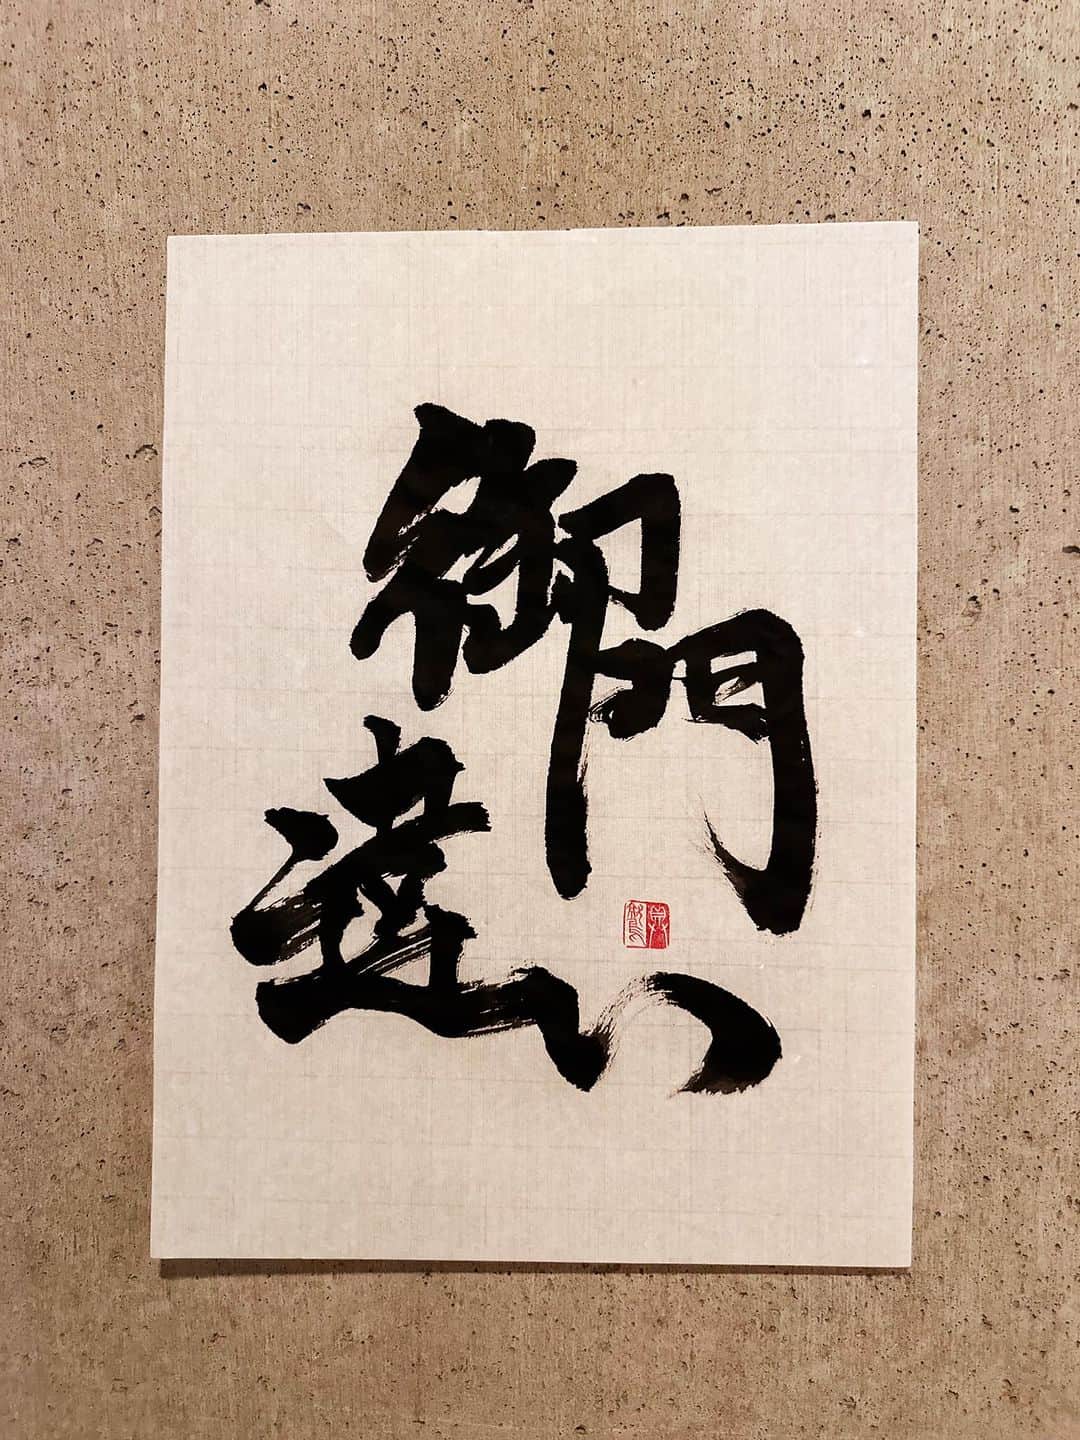 御門
違い